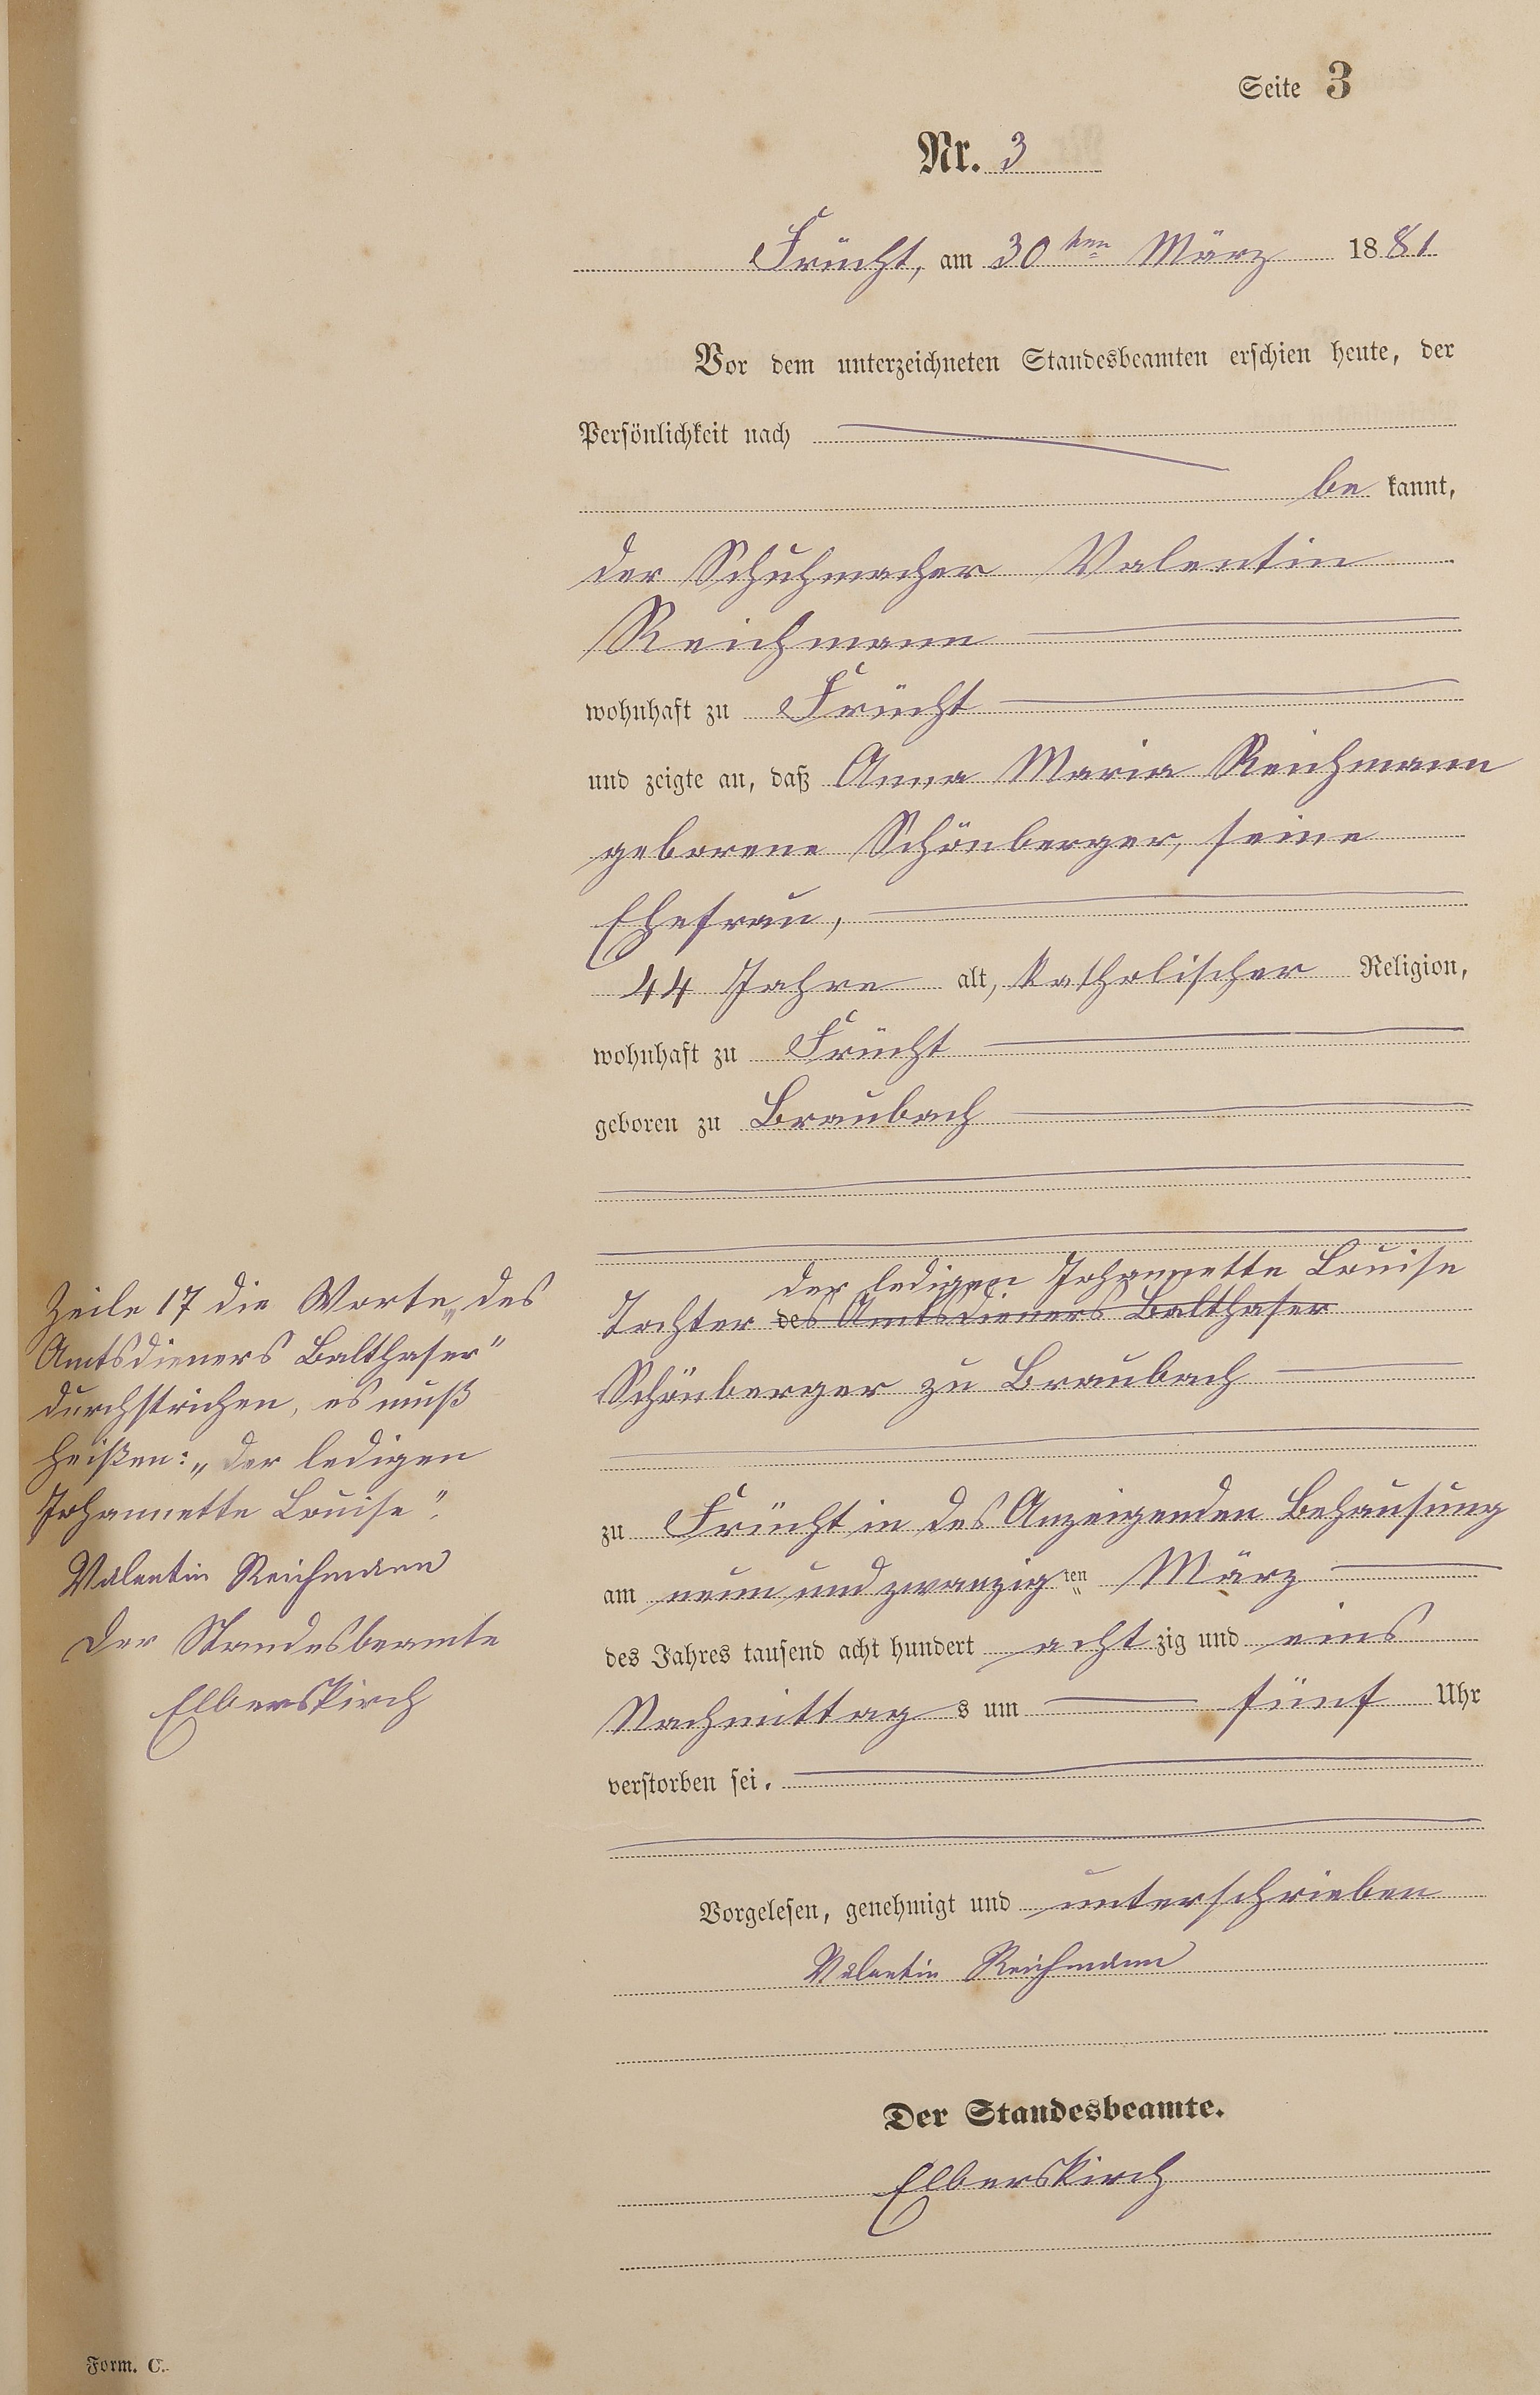 Seite 3
Nr. 3
Frücht, am 30ten März 1881
Vor dem unterzeichneten Standesbeamten erschien heute, der
Persönlichkeit nach
be kannt,
der Schuhmacher Valentin
Reichmann
wohnhaft zu Frücht
und zeigte an, daß Anna Maria Reichmann
geborene Schönberger, seine
Ehefrau,
44 Jahre alt, katholischer Religion,
wohnhaft zu Frücht
geboren zu Braubach
der ledigen Johannette Louise
Tochter des Amtsdieners Balthaser
Schönberger zu Braubach
zu Frücht in des Anzeigenden Behausung
am neun und zwanzigten März
des Jahres tausend acht hundert achtzig und eins
Nachmittags um fünf Uhr
verstorben sei.
Vorgelesen, genehmigt und unterschrieben
Valentin Reichmann
Der Standesbeamte.
Elberskirch
Zeile 17 die Worte „des
Amtsdieners Balthaser"
durchstrichen, es muß
heißen: „der ledigen
Johannette Louise".
Valentin Reichmann
Der Standesbeamte
Elberskirch
Form. C.